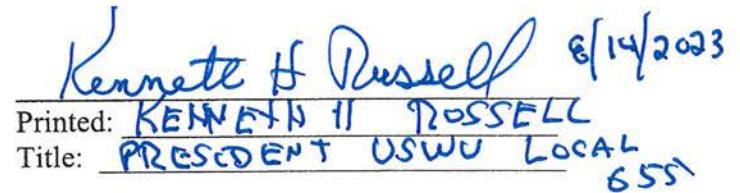 Kenneth H Russell 8/14/2023
Printed: KENNETH H RUSSELL
Title: PRESIDENT USWU LOCAL
655